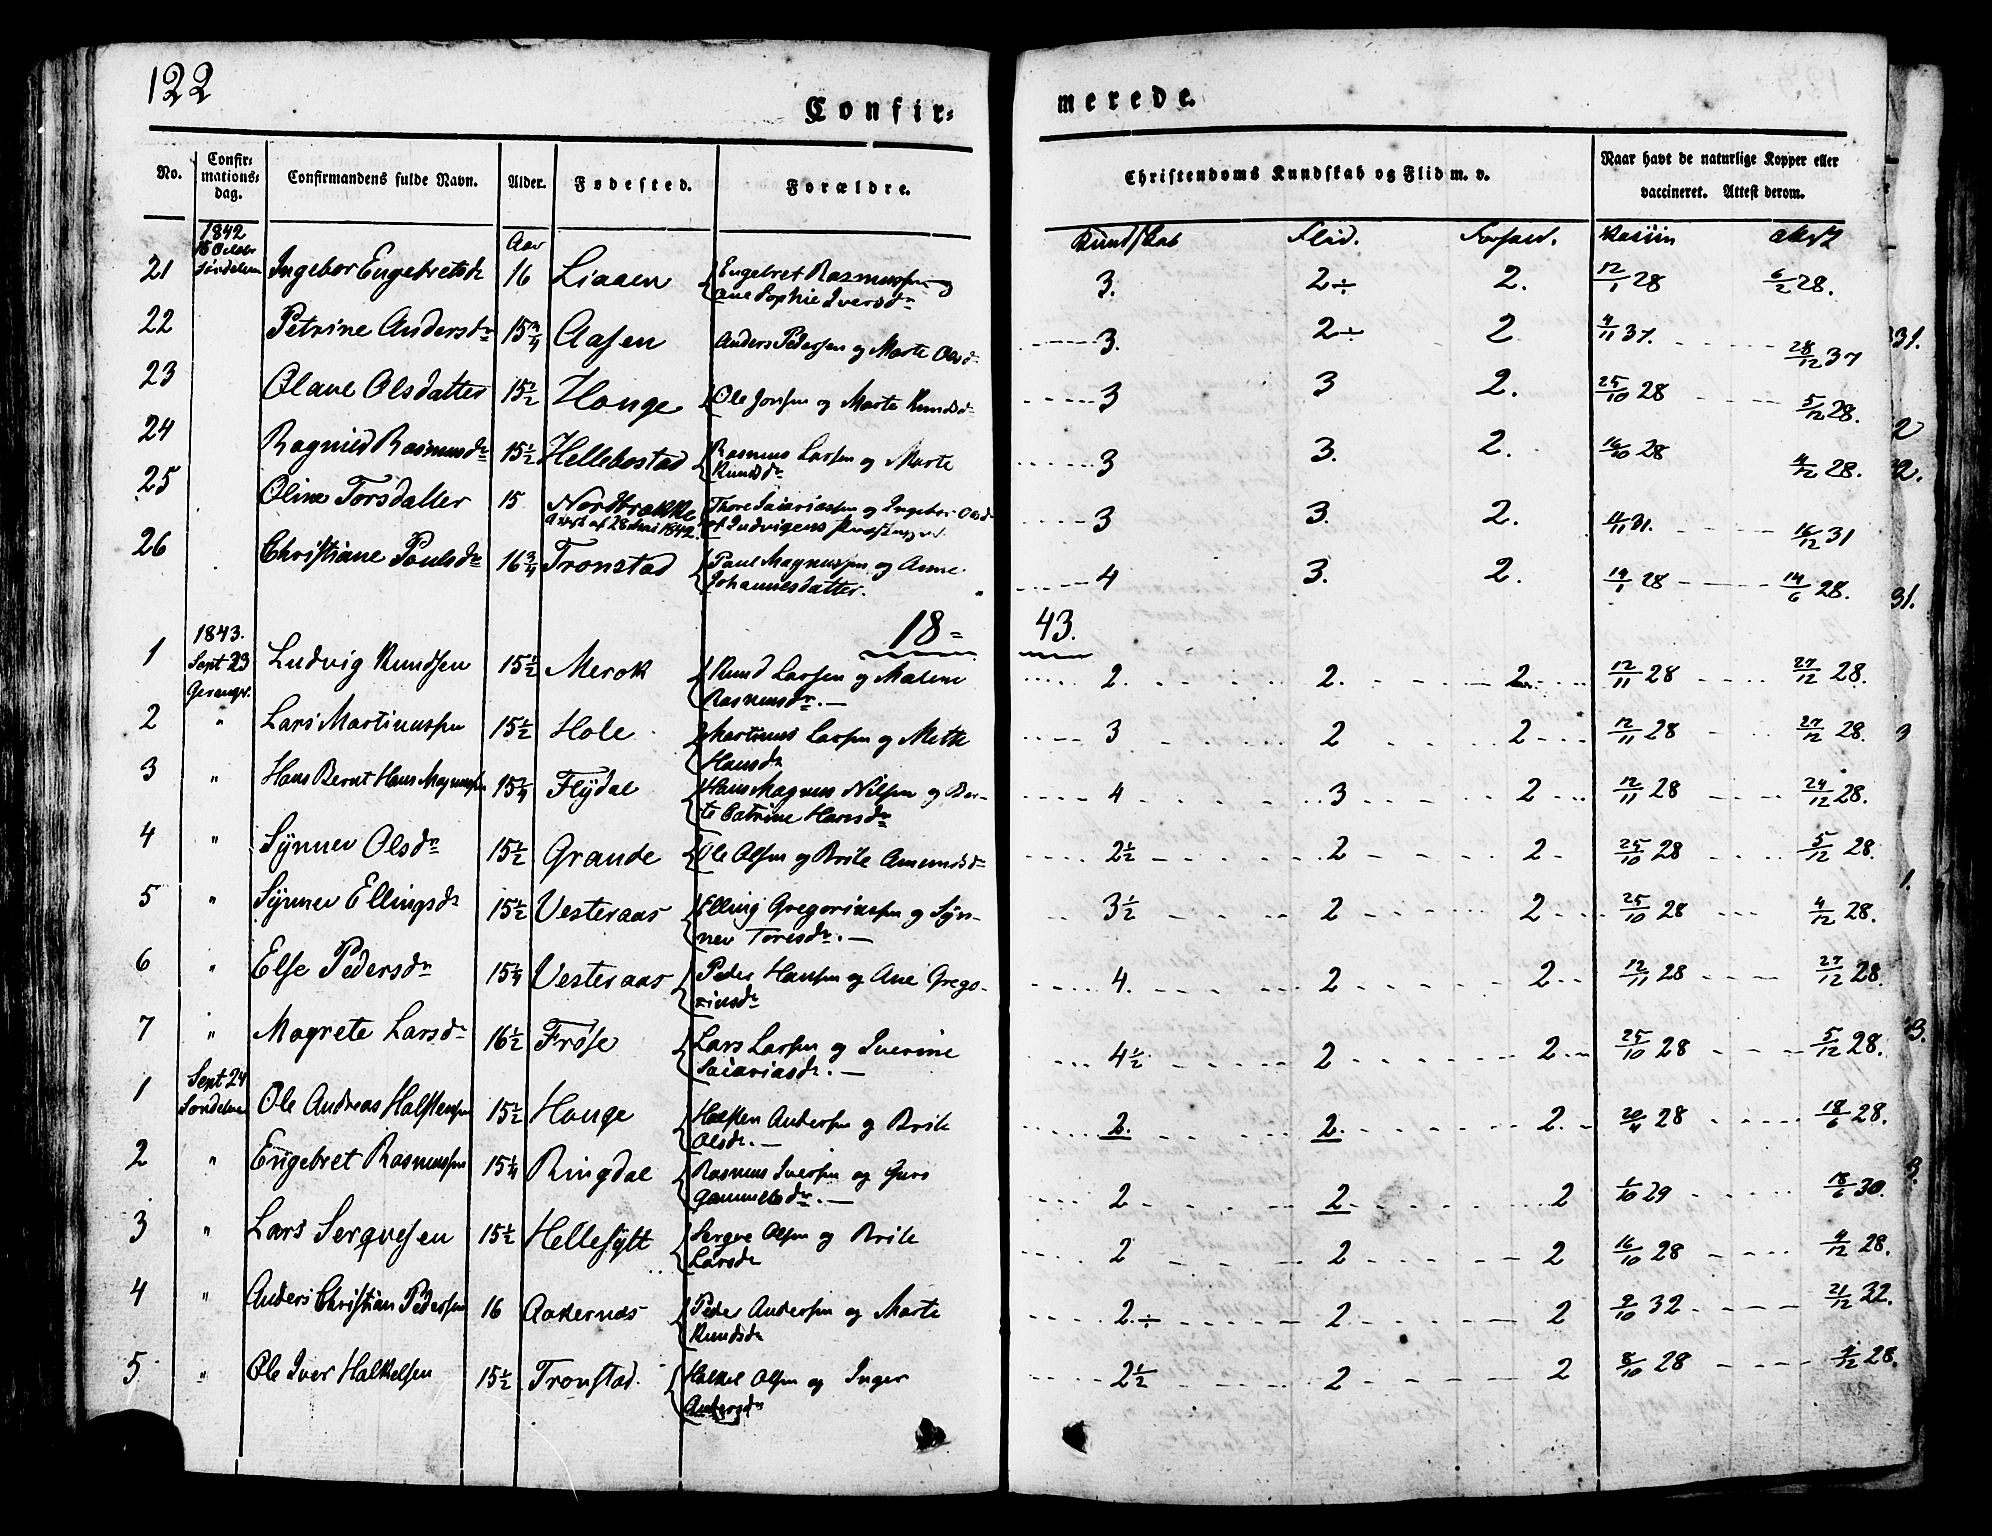 122
Confir=
merede.
No. Confir=mations=dag. Confirmandens fulde Navn. Alder. Fødested. Forældre. Christendoms Kundskab og Flid m. v. Naar havt de naturlige Kopper eller vaccineret. Attest derom.
1842 15 Octobr Søndelven Aar Kundskab Flid. Forhold. Vaccin
21 Ingebor Engebretsdr 16 Liaaen Engebret Rasmussen og Ane Sophie Iversdr 3. 2÷ 2. 12/1 28 6/2 28.
22 Petrine Andersdr 15 3/4 Aasen Anders Pedersen og Marte Olsdr 3. 2÷ 2 4/11 37. 28/12 37
23 Olave Olsdatter 15 1/2 Houge Ole Jonsen og Marte Knudsdr 3 3 2. 25/10 28 5/12 28.
24 Ragnild Rasmusdr 15 1/2 Hellebostad Rasmus Larsen og Marte Knudsdr 3 3. 2. 16/10 28 4/12 28.
25 Oline Torsdatter 15 Nordtrække Attest af 28 Mai 1842. Thore Saiariassen og Ingebor Olsd 3 3. 2. 4/11 31. 16/12 31
26 Christiane Poulsdr 16 3/4 Tronstad Paul Magnussen og Anne Johannesdatter. 4 3. 2. 19/1 28 14/6 28.
18=43.
1 1843. Sept 23 Geranger. Ludvig Knudsen 15 1/2 Merok Knud Larsen og Malene Rasmusdr. 2. 2. 2. 12/11 28 27/12 28.
2 " Lars Martinussen 15 1/2 Hole Martinus Larsen og Mette Hansdr 3 2 2 12/11 28 27/12 28.
3 " Hans Bernt Hans Magnussen 15 1/4 Flydal Hans Magnus Nilsen og Berte Catrine Hansdr 4 3 2 12/11 28 24/12 28.
4 " Synnev Olsdr 15 1/2 Grande Ole Olsen og Brite Amundsdr 2 1/2 2 2 25/10 28 5/12 28.
5 " Synnev Ellingsdr 15 1/2 Vesteraas Elling Gregoriussen og Synnev Toresdr. 3 1/2 2 2 25/10 28 4/12 28.
6 " Else Pedersdr 15 1/4 Vesteraas Peder Hansen og Ane Gregoriusdr 4. 2 2 12/11 28 27/12 28.
7 " Magrete Larsdr 16 1/2 Frøse Lars Larsen og Iverine Saiariasdr. 4 1/2 2 2 25/10 28 5/12 28.
1 Sept 24 Søndelven Ole Andreas Halstensen 15 1/2 Houge Halsten Andersen og Brite Olsdr. 2. 2. 2. 20/4 28 18/6 28.
2 " Engebret Rasmussen 15 1/4 Ringdal Rasmus Iversen og Guro Gammelsdr. 2 2. 2 1/10 29 18/6 30.
3 " Lars Sergvesen 15 1/2 Hellesylt Sergve Olsen og Brite Larsdr 2 2 2 16/10 28 4/12 28.
4 " Anders Christian Pedersen 16 Aakernæs Peder Andersen og Marte Knudsdr 2÷ 2 2 9/10 32 21/12 32.
5 " Ole Iver Halkelsen 15 1/2 Tronstad. Halkel Olsen og Inger Andersdr 2 1/2 2 2 8/10 28 4/12 28.